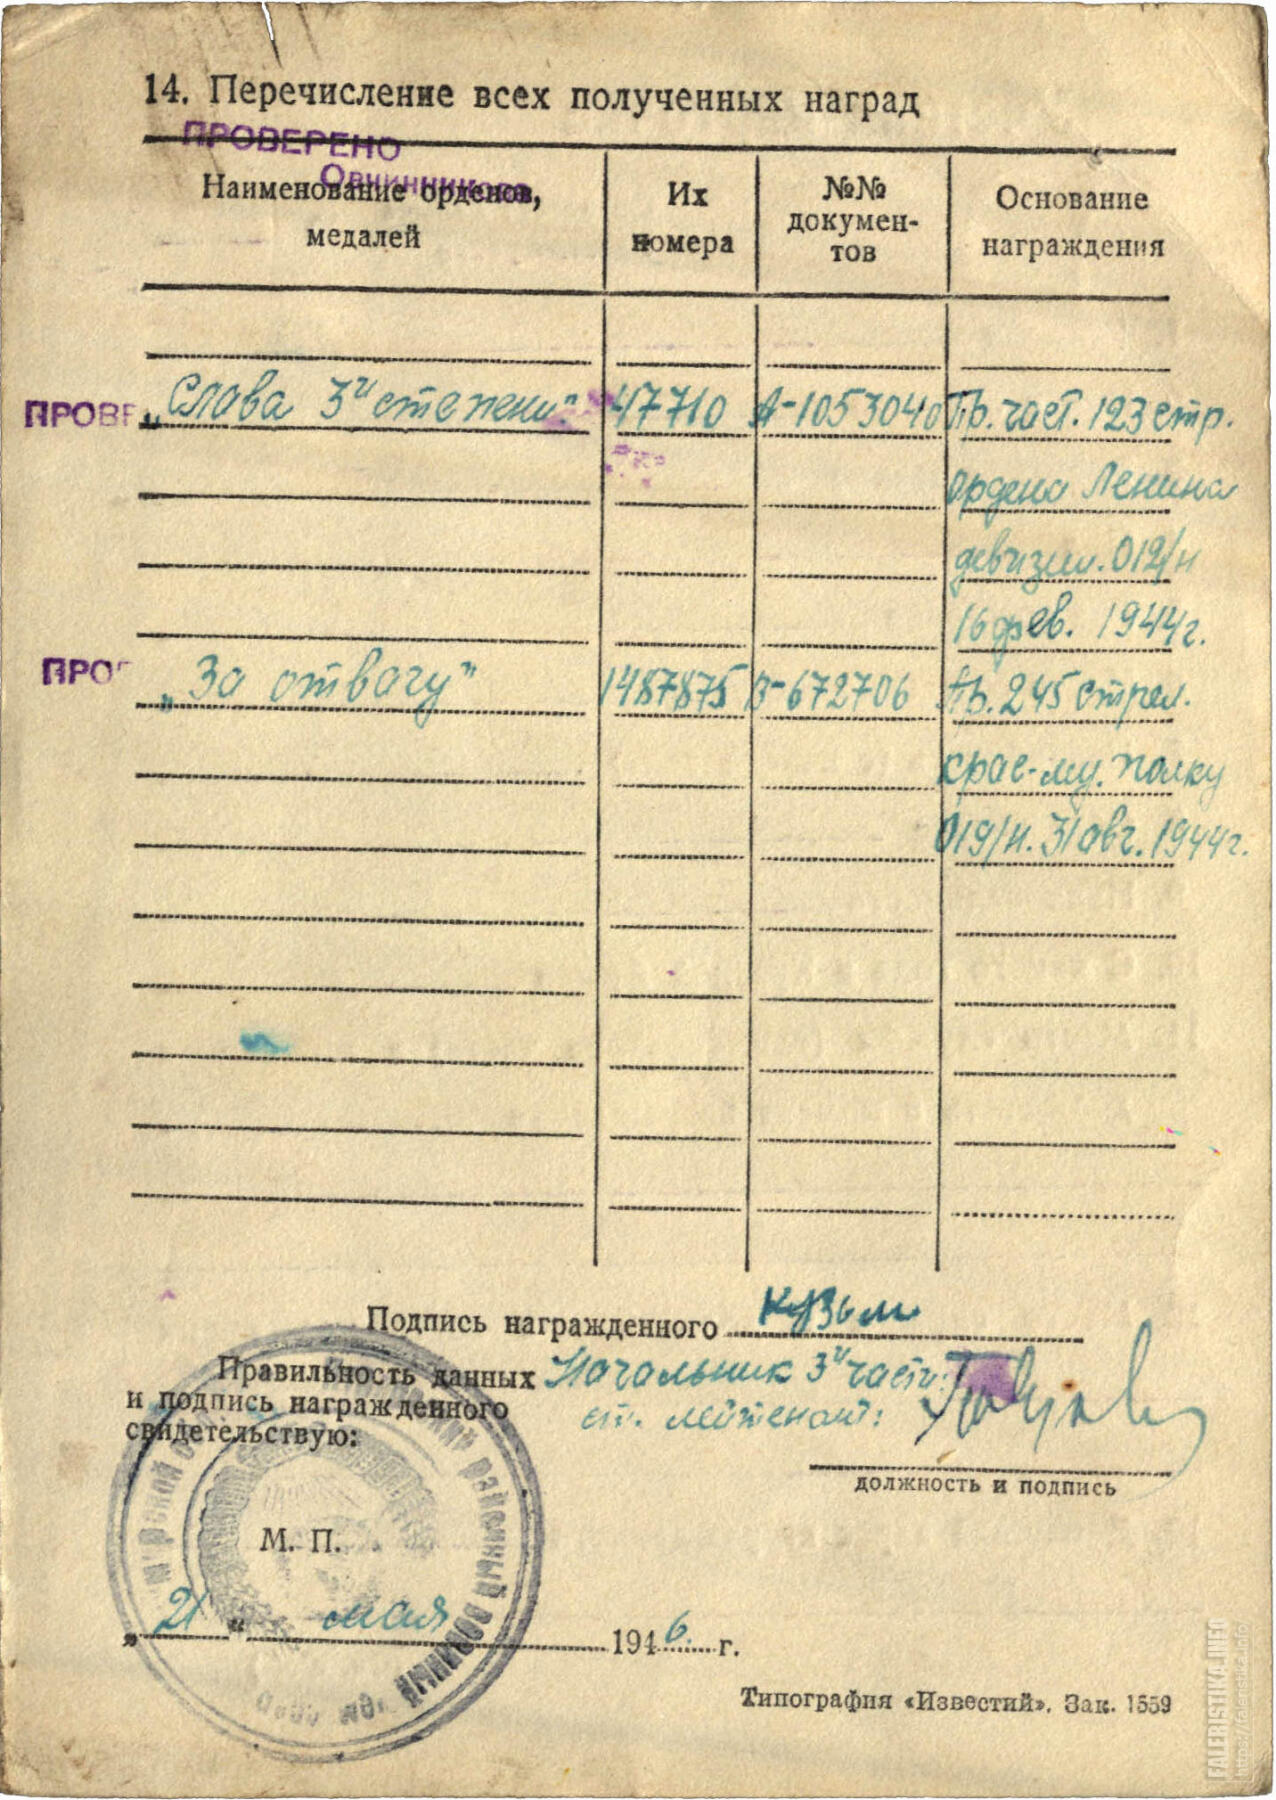 14. Перечисление всех полученных наград
ПРОВЕРЕНО
Овчинникова
Наименование орденов, медалей
Их номера
№№ докумен-тов
Основание награждения
ПРОВЕ „Слава 3й степени" 47710 А-1053040 Пр. част. 123 стр.
ордена Ленина
девизии. 012/н
16 фев. 1944г.
ПРО „За отвагу" 1487875 В-672706 Пр. 245 стрел.
крас-му. полку
019/н. 31 авг. 1944г.
Подпись награжденного Кузьм
Правильность данных Начальник 3й части:
и подпись награжденного ст. лейтенант:
свидетельствую:
должность и подпись
М. П.
районный военный
„21" мая 1946. г.
Типография «Известий». Зак. 1559
FALERISTIKA.INFO
https://faleristika.info